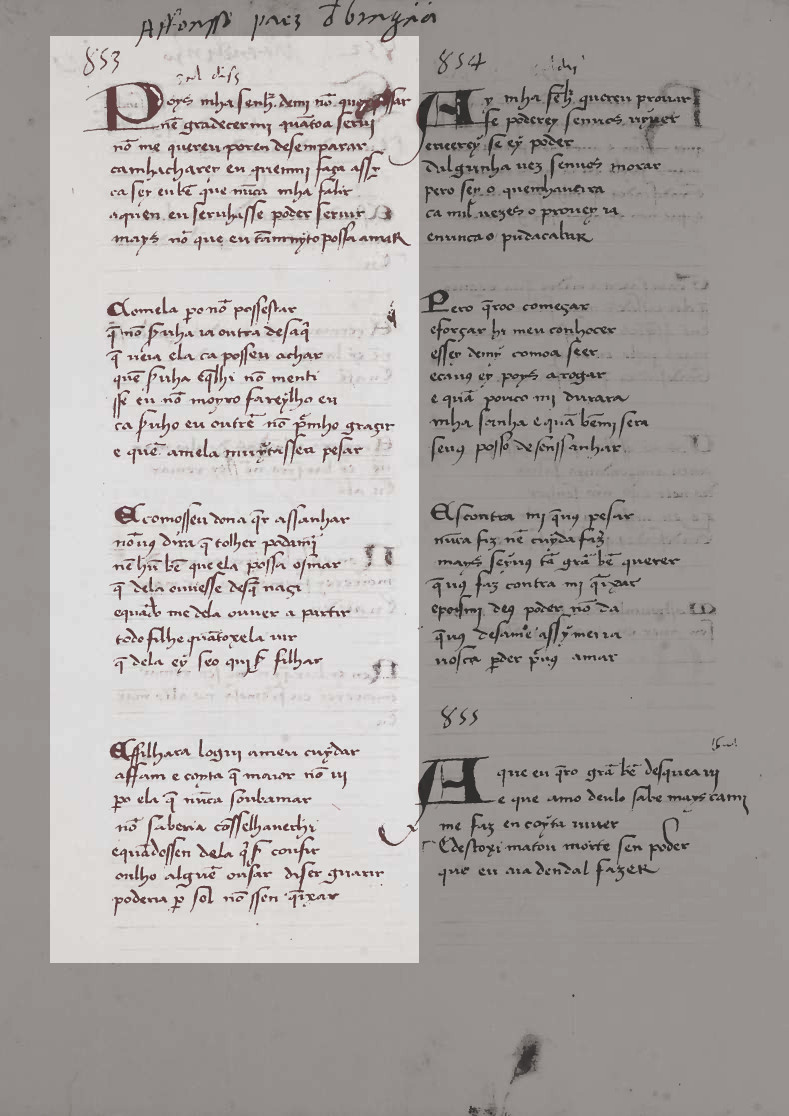 Affonsso paez d̃ bragãa
853
Poys mha senh̃. demi nõ quer pessar
nẽ gradecermi quãtoa serui
nõ me quereu poren desemparar
camhacharey en quenmi faça assy
ca sey eu bẽ que nũca mha falir
aquen eu seruhasse poder seruir
mays nõ que eu tãmuyto possa amaR
Eomela po nõ possestar
q̃ nõ ſuha ia outra desaq̃
q̃ ueia ela ca posseu achar
quẽ ſuha eq̃lhi nõ menti
sse eu nõ moyro fareylho eu
ca ſuho eu outrẽ nõ p̃mho graçir
e quẽ amela muytasseu pesar
Ecomosseu dona q̃r assanhar
nõuꝯ dira q̃ tolher podami
nẽ hũ bẽ que ela possa osmar
q̃ dela ouuesse desq̃ naçi
equãdo me dela ouuer a partir
todo filhe quãtoxela uir
q̃ dela ey seo quiſ filhar
Effilhara logui ameu cuydar
affam e coyta q̃ maior nõ ui
po ela q̃ nũca soubamar
nõ saberia cosselhauerhi
equãdossen dela q̃ſ cousir
oulho alguẽ ousar diser guarir
poderia p̃ sol nõ ssen q̃ixar
854
Ay mha seh̃r quereu prouar
se poderey senuos uyuer
eueerey se ey poder
dalgunha uez senuos morar
pero sey o quemhauerra
ca mil uezes o prouey ia
enuncao pudacabaR
Pero q̃roo começar
eforçar hi meu conhocer
essey demĩ comoa seer
ecauꝯ ey poys arogar
e quã pouco mi durara
mha sanha e quã bẽmi sera
seuꝯ posso desenssanhar
Escontra mi q̃uꝯ pesar
nũca fiz nẽ cuyda faz̃
mays seyuꝯ tã grã bẽ querer
q̃uꝯ faz contra mi q̃ixar
epoismi deꝯ poder nõ da
q̃uꝯ desame assy meu ia
uosca p̃der p̃uꝯ amar
855
A que eu q̃ro grã bẽ desquea ui
e que amo deulo sabe mays cami
me faz en coyta uiuer
Edestoxi matou morte sen poder
que eu aia dendal fazeR